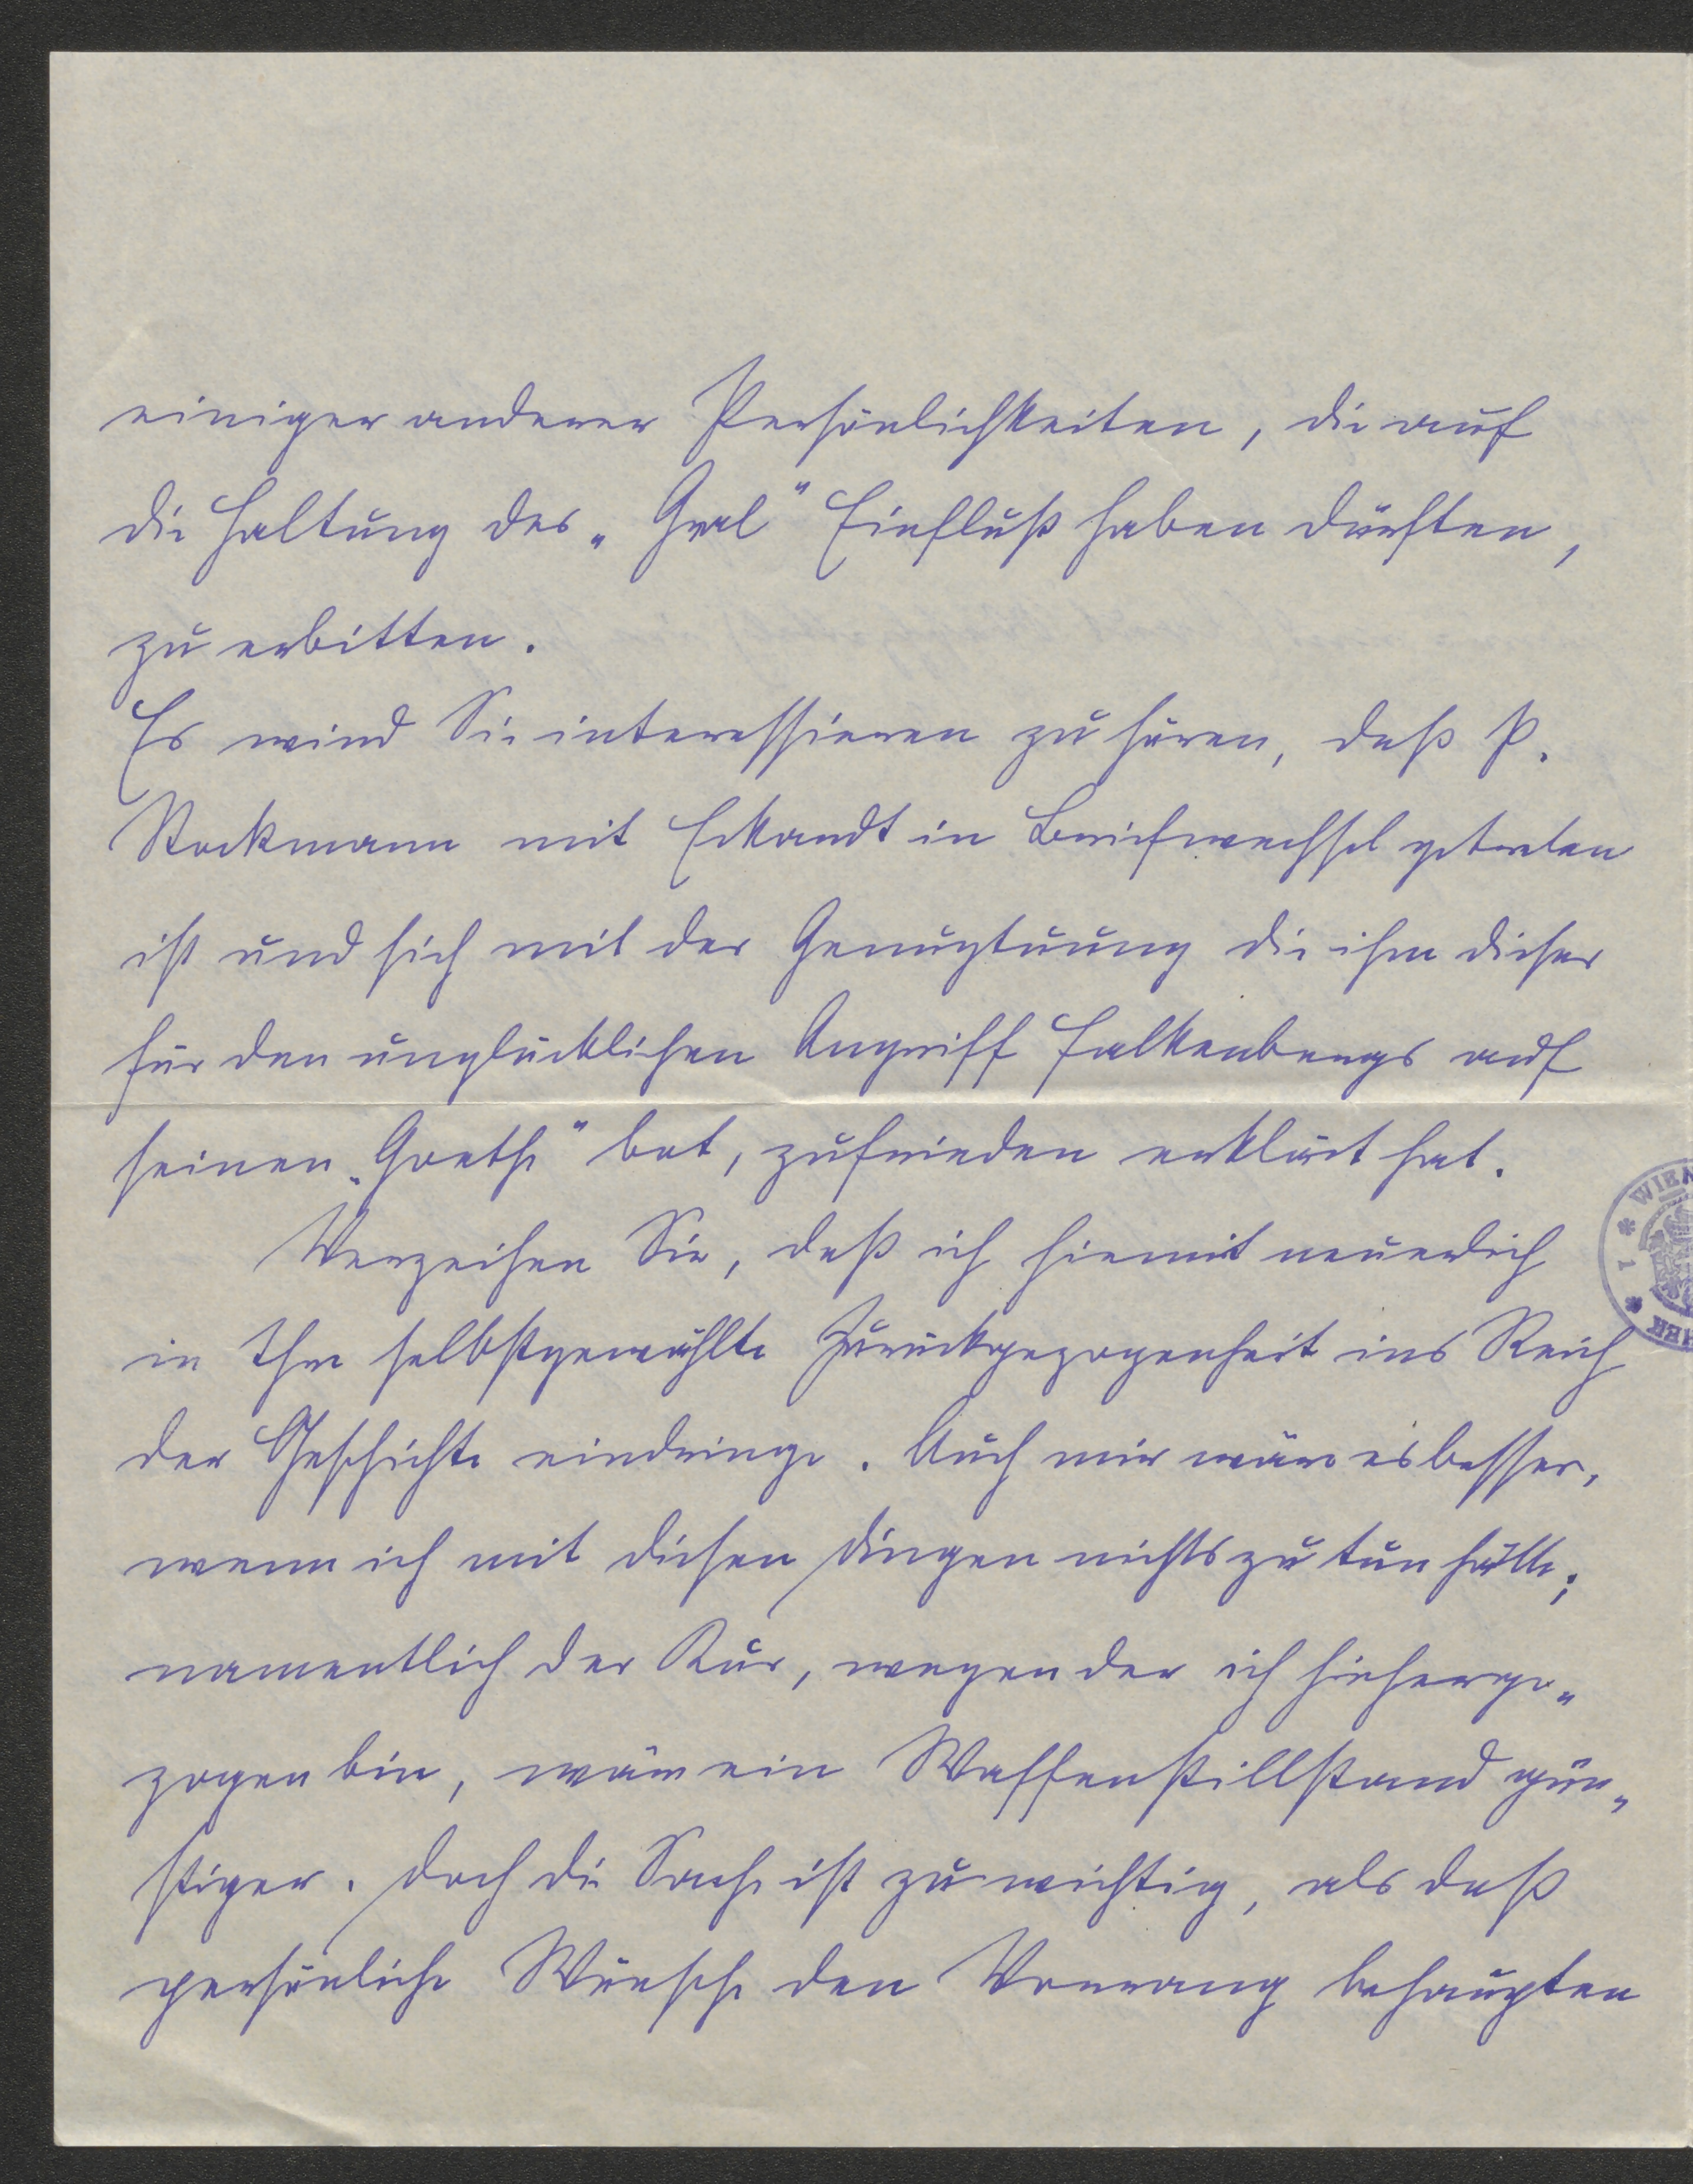 einiger anderer Persönlichkeiten, die auf
die Haltung des „Gral" Einfluß haben dürften,
zu erbitten.
Es wird Sie interessieren zu hören, daß P.
Stockmann mit Eckardt in Briefwechsel getreten
ist und sich mit der Genugtuung die ihm dieser
für den unglücklichen Angriff Falkenbergs auf
seinen „Goethe" bot, zufrieden erklärt hat.
Verzeihen Sie, daß ich hiemit neuerlich
in Ihre selbstgewählte Zurückgezogenheit ins Reich
der Geschichte eindringe. Auch mir wäre es besser,
wenn ich mit diesen Dingen nichts zu tun hätte;
namentlich der Kur, wegen der ich hieherge„
zogen bin, wäre ein Waffenstillstand gün„
stiger. Doch die Sache ist zu wichtig, als daß
persönliche Wünsche den Vorrang behaupten
WIEN
1